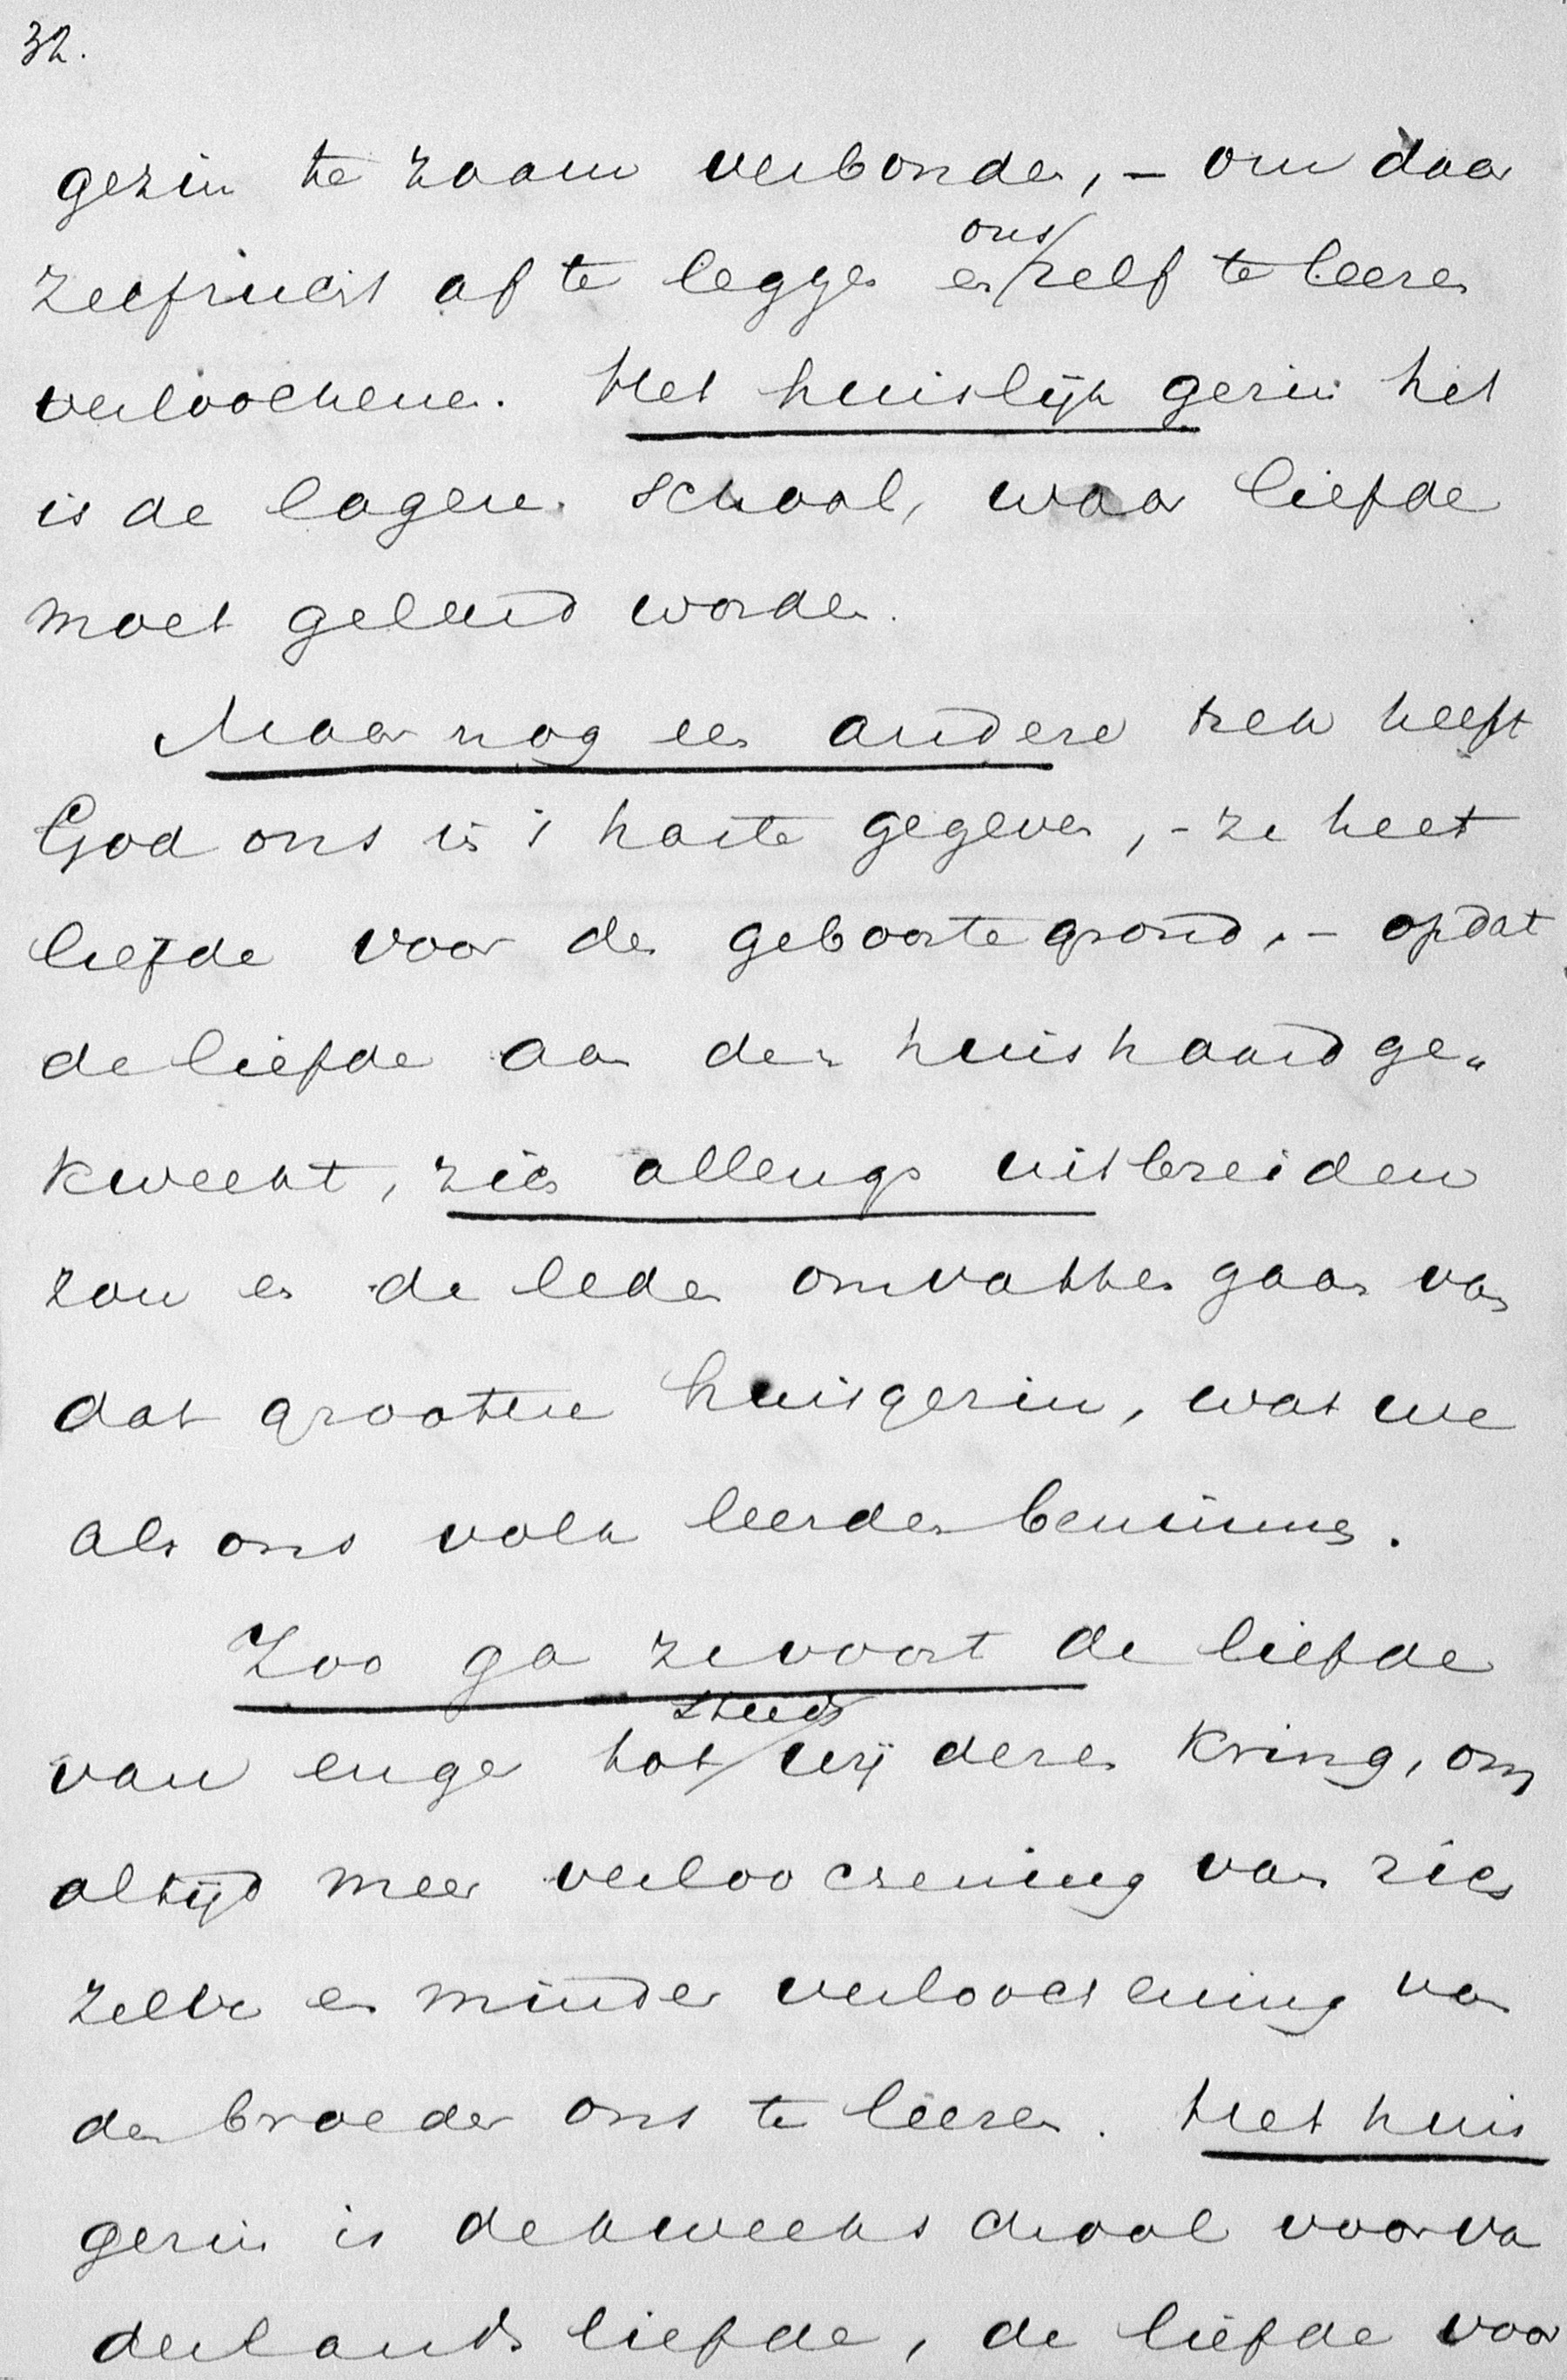 32.
gezin te zaam verbonden, – om daar
zelfzucht af te leggen en ons zelf te leeren
verloochenen. Het huislijk gezin het
is de lagere school, waar liefde
moet geleerd worden.
Maar nog een andere trek heeft
God ons in 't harte gegeven, – ze heet
liefde voor den geboortegrond, – opdat
de liefde aan den huishaard ge-
kweekt, zich allengs uitbreiden
zou en de leden omvatten gaan van
dat grootere huisgezin, wat we
als ons volk leerden beminnen.
Zoo ga ze voort de liefde
van enger tot steeds wijderen kring, om
altijd meer verloochening van zich
zelve en minder verloochening van
den broeder ons te leeren. Het huis
gezin is de kweekschool voor va
derlands liefde, de liefde voor